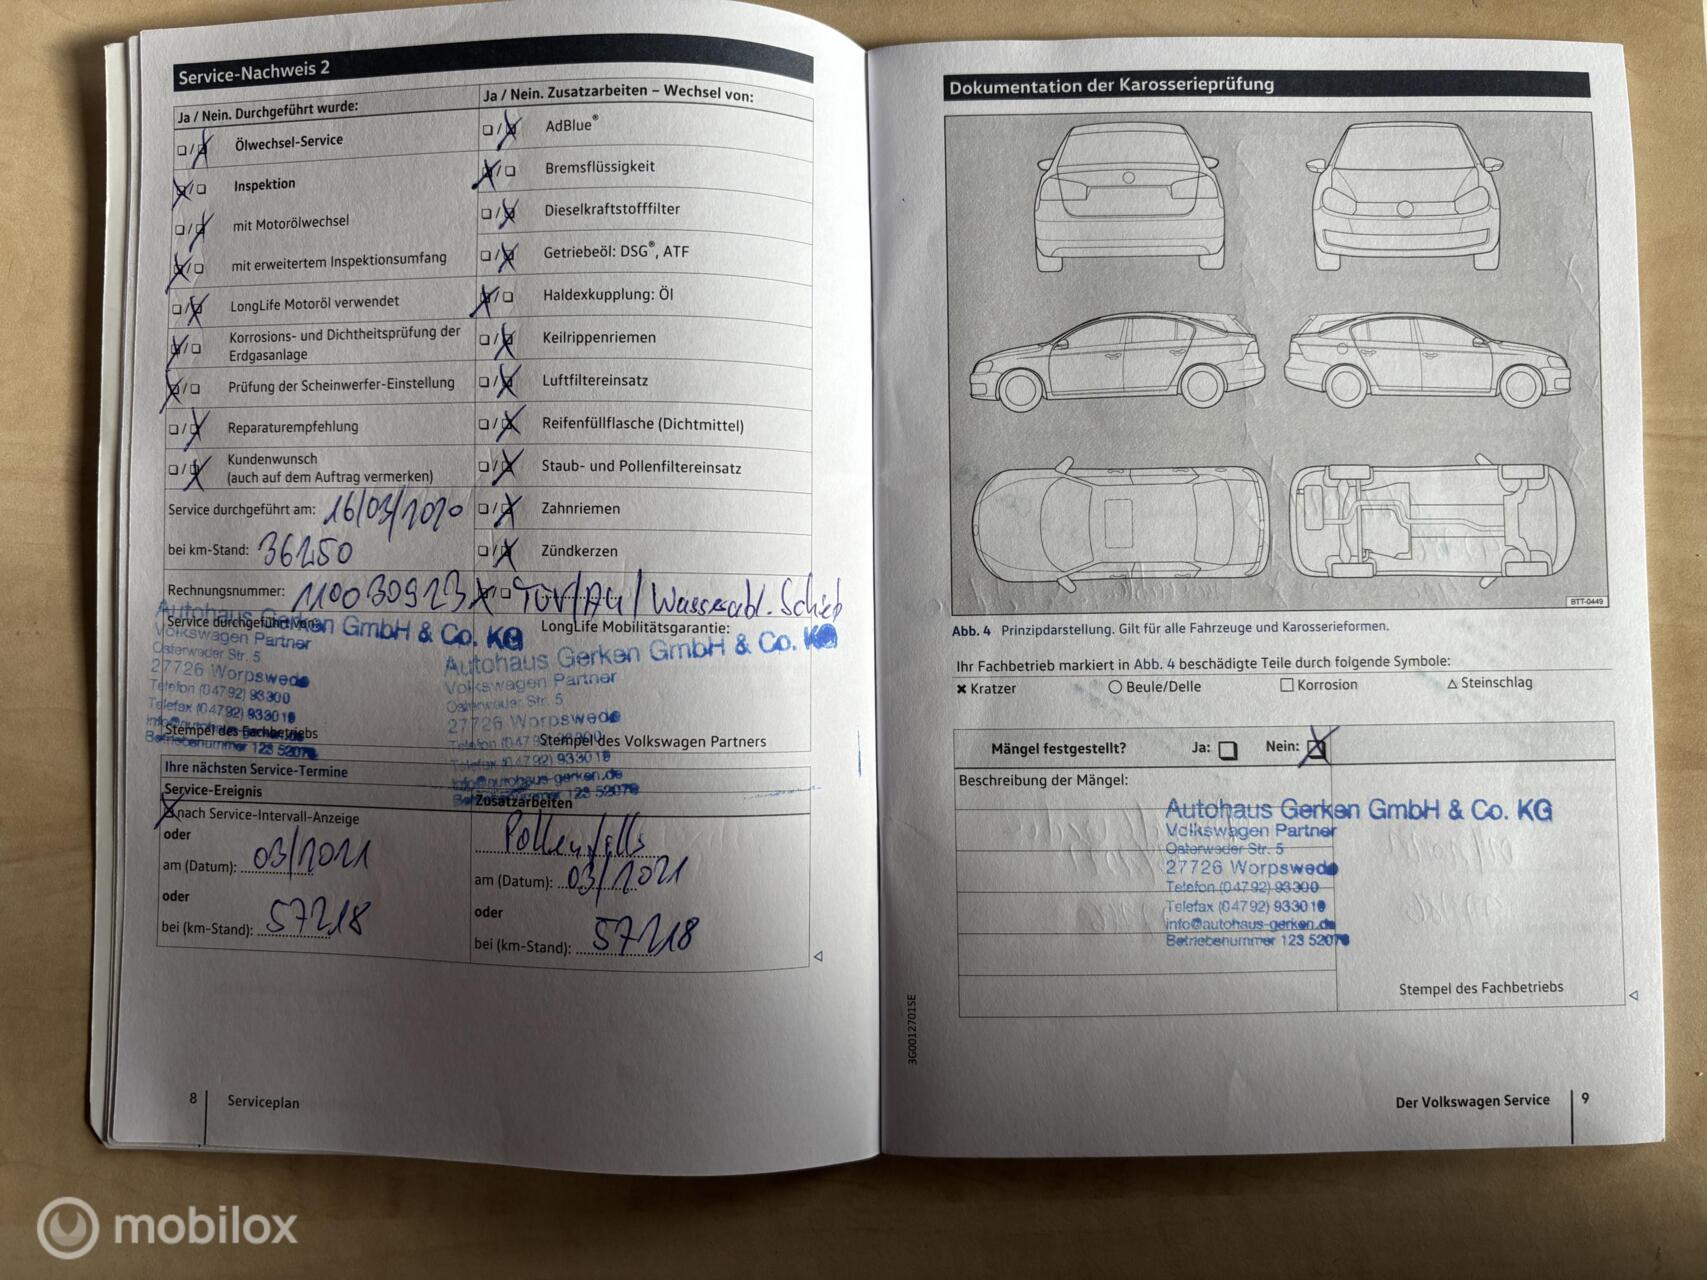 Service-Nachweis 2
Ja / Nein. Durchgeführt wurde:
Ölwechsel-Service
Inspektion
mit Motorölwechsel
mit erweitertem Inspektionsumfang
LongLife Motoröl verwendet
Korrosions- und Dichtheitsprüfung der
Erdgasanlage
Prüfung der Scheinwerfer-Einstellung
Reparaturempfehlung
Kundenwunsch
(auch auf dem Auftrag vermerken)
Service durchgeführt am: 16/03/2020
bei km-Stand: 36250
Rechnungsnummer: 110030923
Service durchgeführt von:
Autohaus Gerken GmbH & Co. KG
Volkswagen Partner
Osterweder Str. 5
27726 Worpswede
Telefon (04792) 93300
Telefax (04792) 933019
info@autohaus-gerken.de
Stempel des Fachbetriebs
Betriebsnummer 123 52079
Ja / Nein. Zusatzarbeiten – Wechsel von:
AdBlue®
Bremsflüssigkeit
Dieselkraftstofffilter
Getriebeöl: DSG®, ATF
Haldexkupplung: Öl
Keilrippenriemen
Luftfiltereinsatz
Reifenfüllflasche (Dichtmittel)
Staub- und Pollenfiltereinsatz
Zahnriemen
Zündkerzen
TÜV/AU/Wasserabl. Schieb
LongLife Mobilitätsgarantie:
Autohaus Gerken GmbH & Co. KG
Volkswagen Partner
Osterweder Str. 5
27726 Worpswede
Telefon (04792) 93300
Stempel des Volkswagen Partners
Telefax (04792) 933019
info@autohaus-gerken.de
Betriebsnummer 123 52079
Ihre nächsten Service-Termine
Service-Ereignis
nach Service-Intervall-Anzeige
oder
am (Datum): 03/2021
oder
bei (km-Stand): 57218
Zusatzarbeiten
am (Datum): 03/2021
oder
bei (km-Stand): 57218
8
Serviceplan
Dokumentation der Karosserieprüfung
BTT-0449
Abb. 4 Prinzipdarstellung. Gilt für alle Fahrzeuge und Karosserieformen.
Ihr Fachbetrieb markiert in Abb. 4 beschädigte Teile durch folgende Symbole:
Kratzer Beule/Delle Korrosion Steinschlag
Mängel festgestellt? Ja: Nein:
Beschreibung der Mängel:
Autohaus Gerken GmbH & Co. KG
Volkswagen Partner
Osterweder Str. 5
27726 Worpswede
Telefon (04792) 93300
Telefax (04792) 933019
info@autohaus-gerken.de
Betriebsnummer 123 52079
Stempel des Fachbetriebs
3G0012701SE
Der Volkswagen Service
9
mobilox